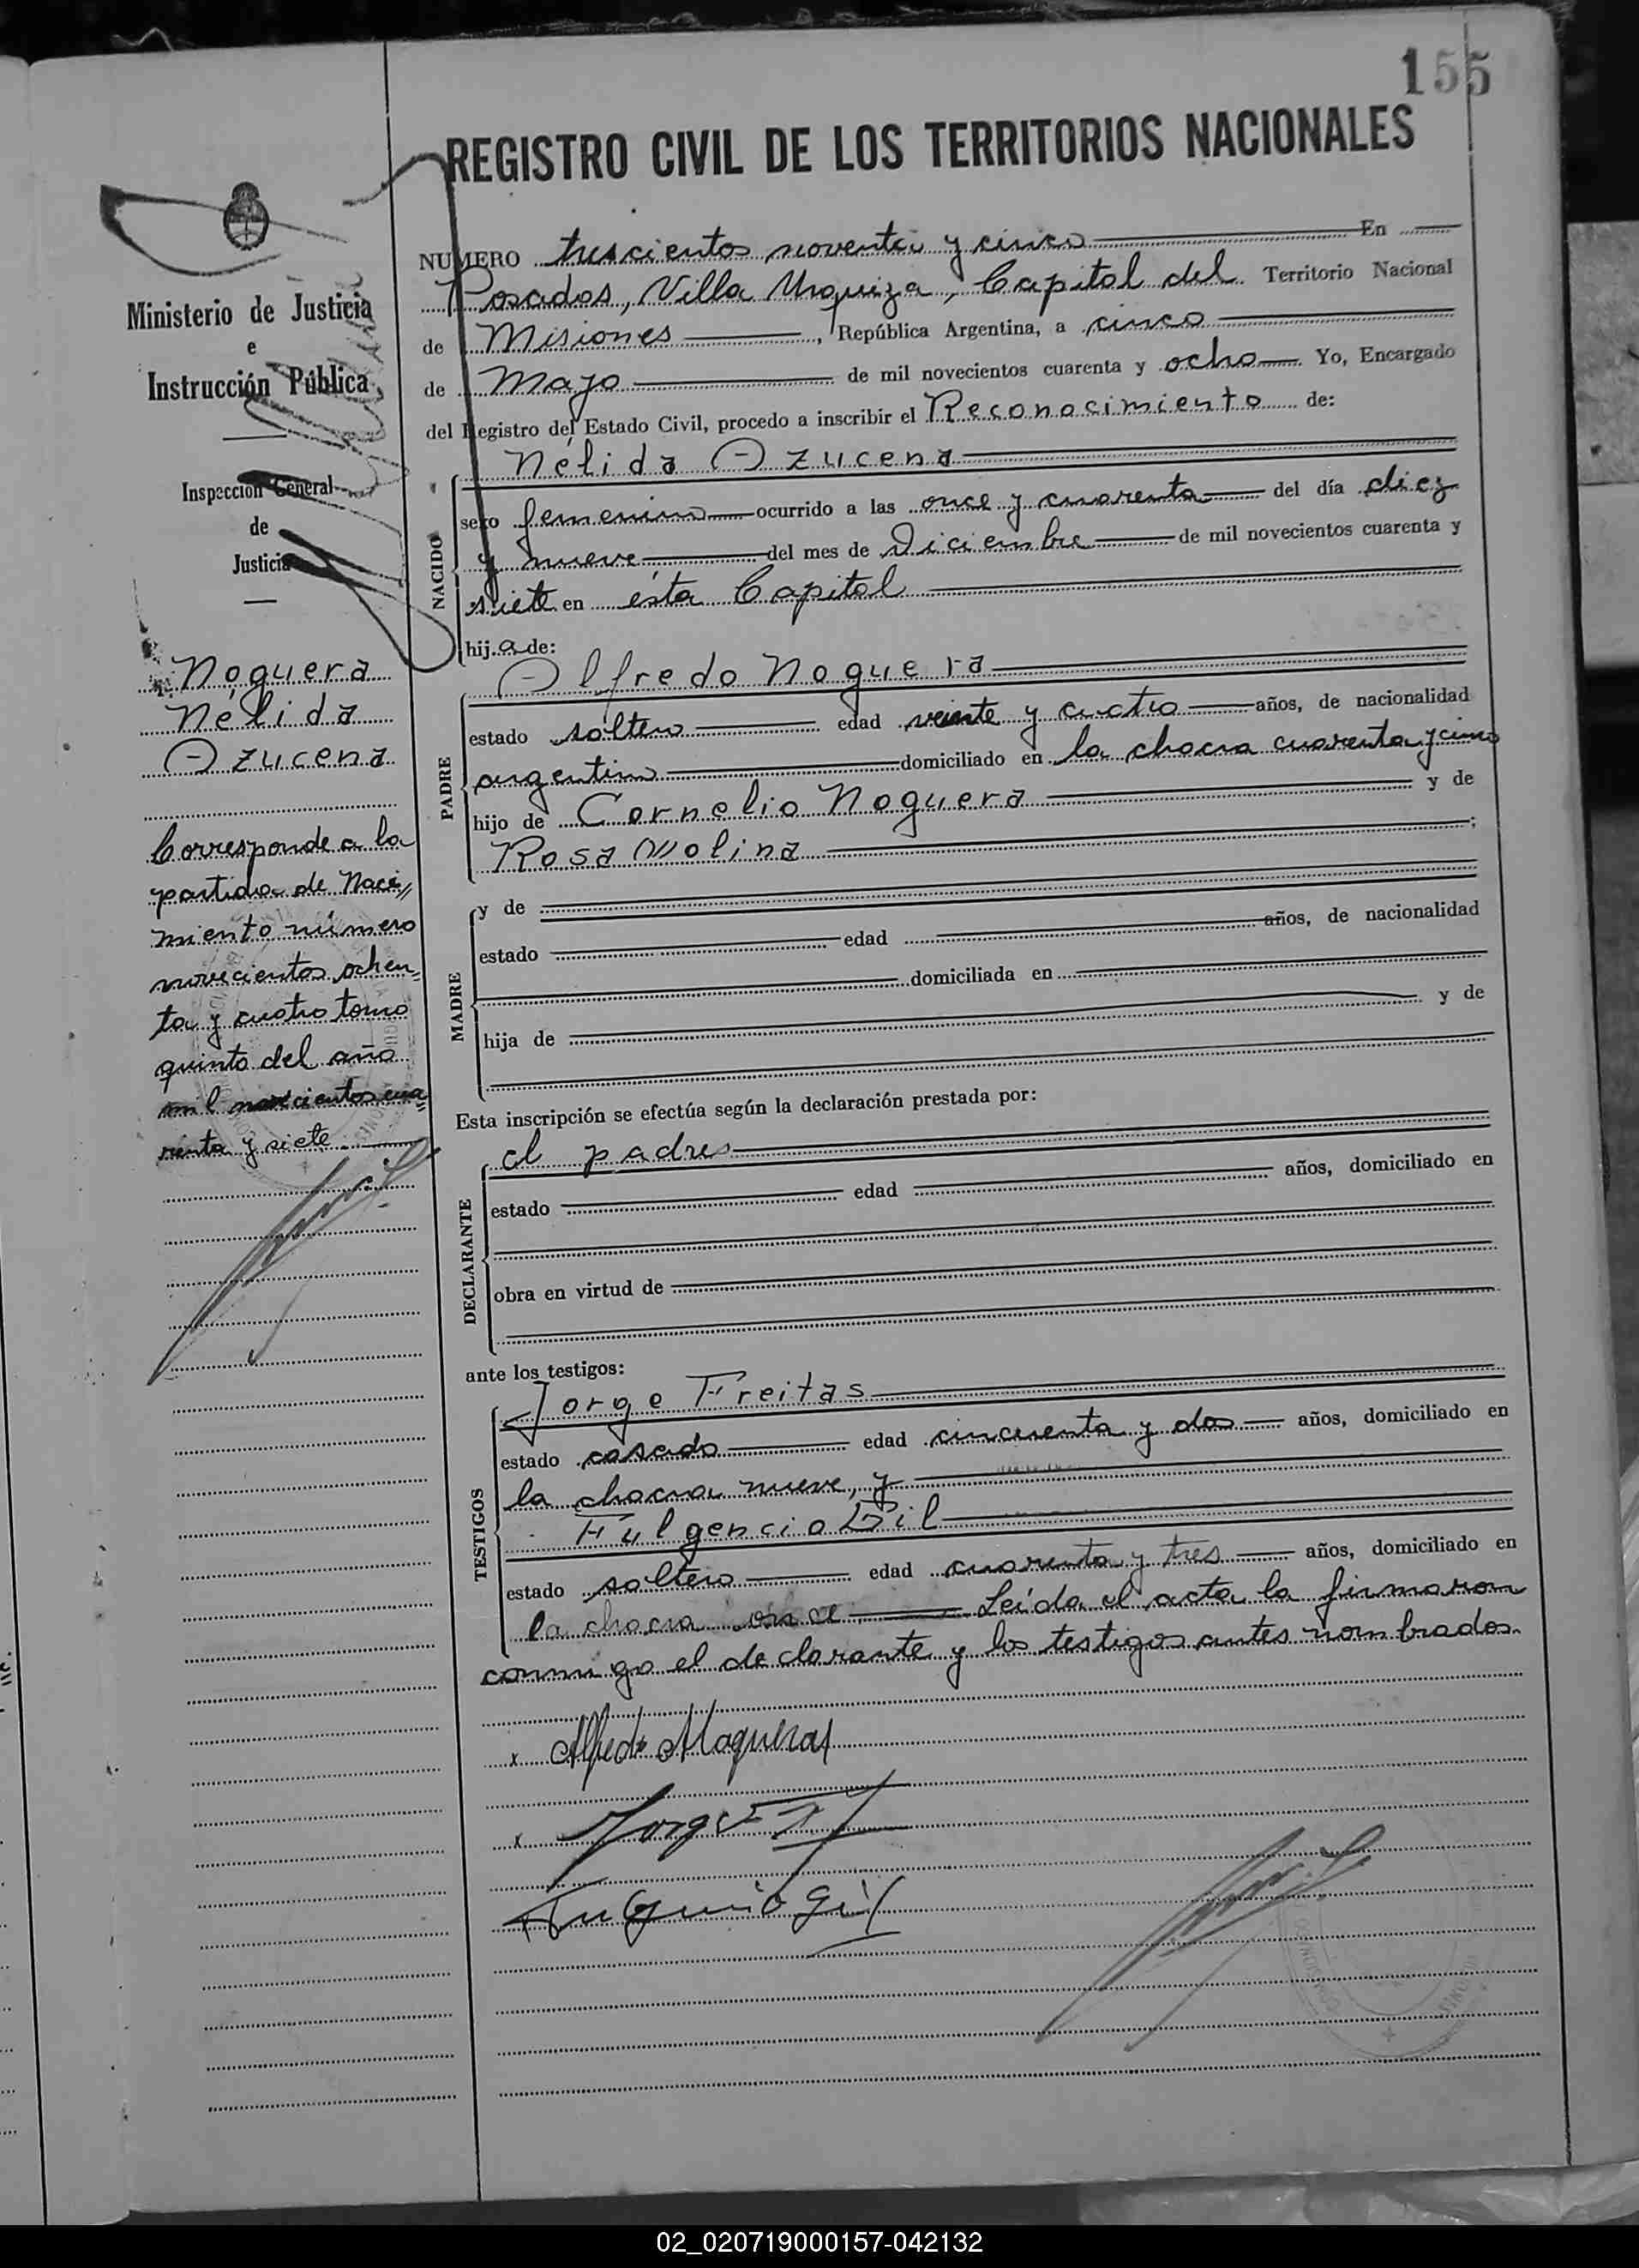 155
REGISTRO CIVIL DE LOS TERRITORIOS NACIONALES
Ministerio de Justicia
e
Instrucción Pública
Inspección General
de
Justicia
Noguera
Nélida
Azucena
Corresponde a la
partida de Naci,,
miento número
novecientos ochen,
ta y cuatro tomo
quinto del año
mil novecientos cua
renta y siete.
NUMERO trescientos noventa y cinco En
Posadas, Villa Urquiza, Capital del Territorio Nacional
de Misiones, República Argentina, a cinco
de Mayo de mil novecientos cuarenta y ocho Yo, Encargado
del Registro del Estado Civil, procedo a inscribir el Reconocimiento de:
Nélida Azucena
NACIDO
sexo femenino ocurrido a las once y cuarenta del día diez
y nueve del mes de Diciembre de mil novecientos cuarenta y
siete en ésta Capital
hija de:
Alfredo Noguera
PADRE
estado soltero edad veinte y cuatro años, de nacionalidad
argentino domiciliado en la chacra cuarenta y cinco
hijo de Cornelio Noguera y de
Rosa Molina;
MADRE
y de
estado edad años, de nacionalidad
domiciliada en
hija de y de
Esta inscripción se efectúa según la declaración prestada por:
DECLARANTE
el padre
estado edad años, domiciliado en
obra en virtud de
ante los testigos:
TESTIGOS
Jorge Freitas
estado casado edad cincuenta y dos años, domiciliado en
la chacra nueve, y
Fulgencio Gil
estado soltero edad cuarenta y tres años, domiciliado en
la chacra once Leída el acta la firmaron
conmigo el declarante y los testigos antes nombrados.
x Alfredo Noguera
x Jorge F
Fulgencio Gil
02_020719000157-042132